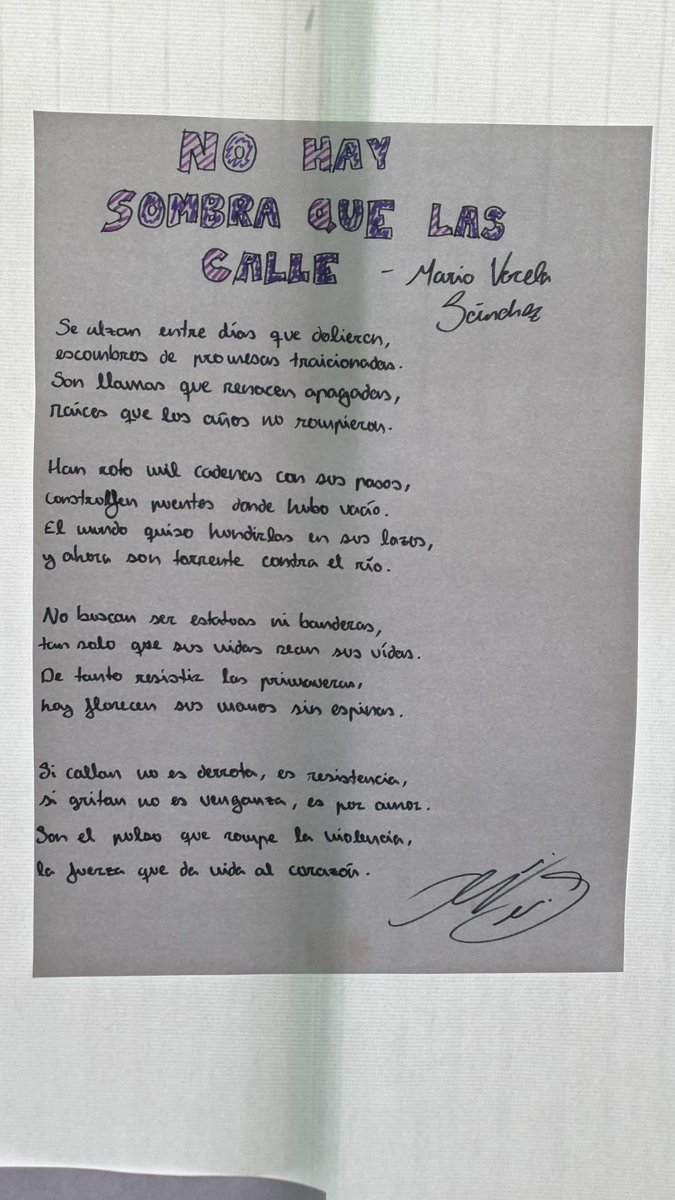 NO HAY
SOMBRA QUE LAS
CALLE - Mario Varela
Sánchez
Se alzan entre días que dolieron,
escombros de promesas traicionadas.
Son llamas que renacen apagadas,
raíces que los años no rompieron.
Han roto mil cadenas con sus pasos,
construyen puentes donde hubo vacío.
El mundo quiso hundirlas en sus lazos,
y ahora son torrente contra el río.
No buscan ser estatuas ni banderas,
tan solo que sus vidas sean sus vidas.
De tanto resistir las primaveras,
hoy florecen sus manos sin espinas.
Si callan no es derrota, es resistencia,
si gritan no es venganza, es por amor.
Son el pulso que rompe la violencia,
la fuerza que da vida al corazón.